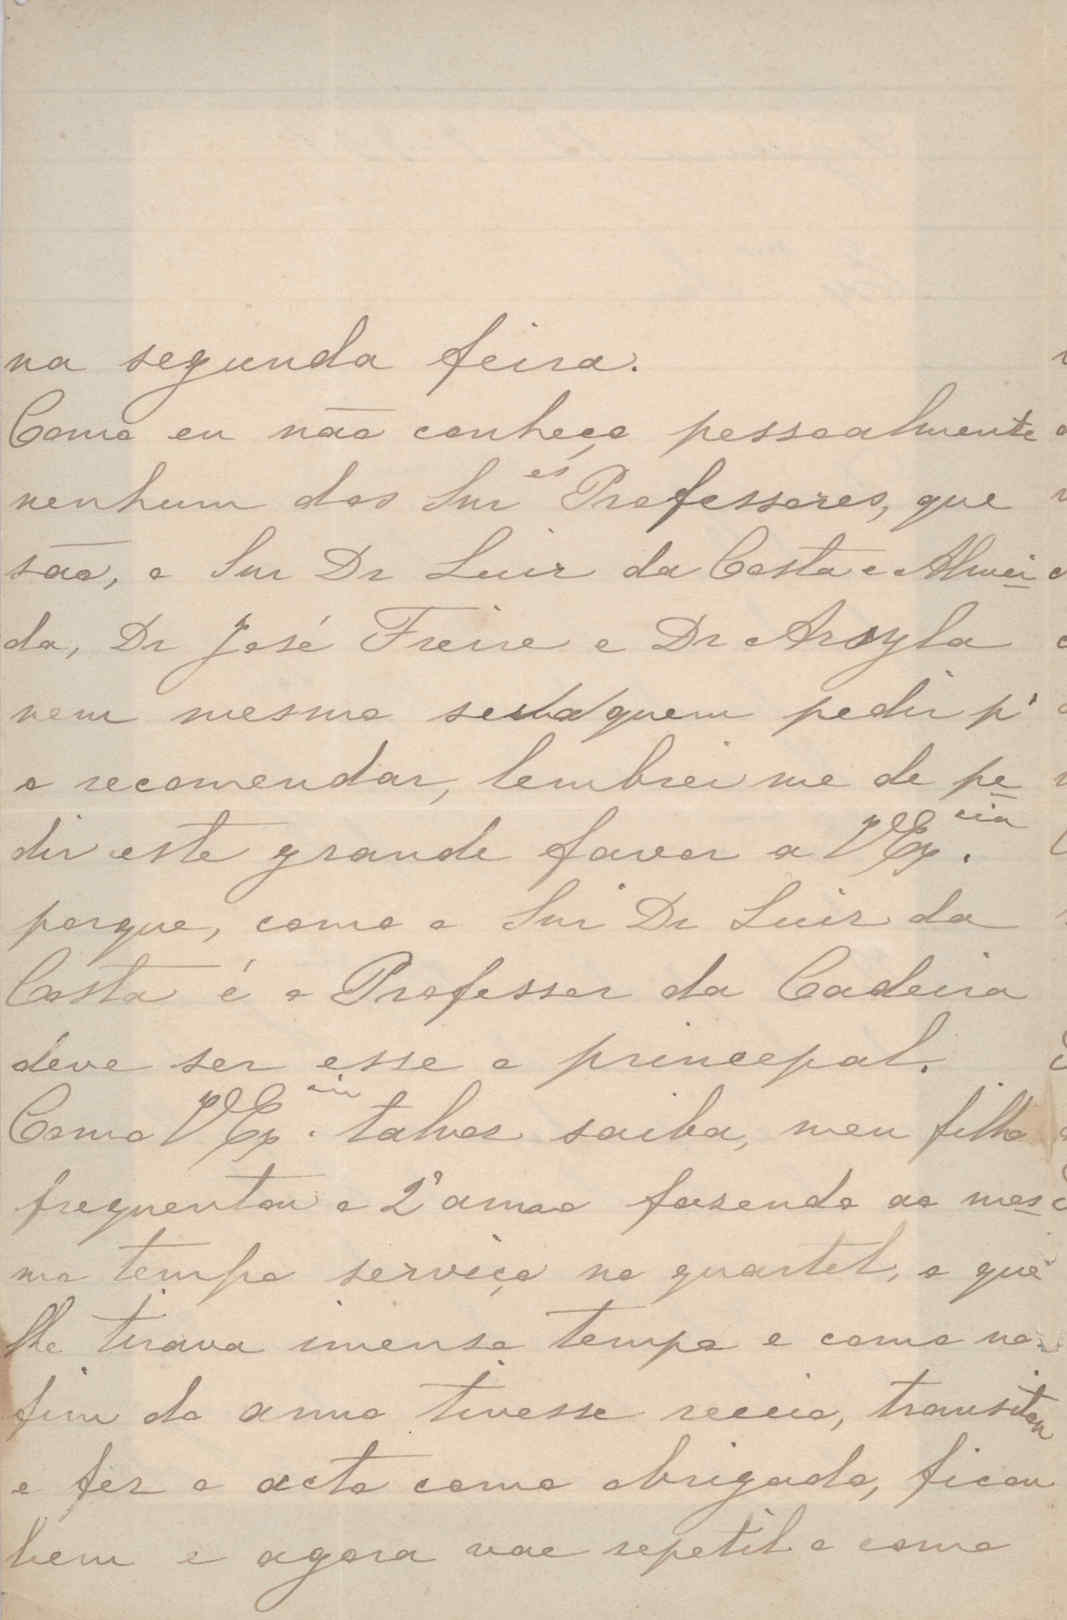 na segunda feira.
Como eu não conheço pessoalmente
nenhum dos Snr.es Professores, que
são, o Snr Dr Luiz da Costa e Almei
da, Dr José Freire e Dr Arzyla
nem mesmo quem pedir p.ª
o recomendar, lembrei me de pe
dir este grande favor a VEx.cia
porque, como o Snr Dr Luiz da
Costa é o Professor da Cadeira
deve ser esse o princepal.
Como VEx.cia talvez saiba, meu filho
frequentou o 2º anno fazendo ao mes
mo tempo serviço no quartel, o que
lhe tirava imenso tempo e como no
fim do anno tivesse receio, transitou
e fez o acto como obrigado, ficou
bem e agora vae repetil o como